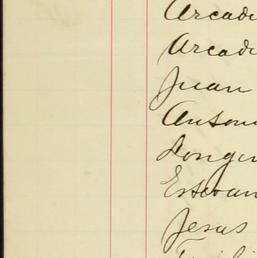 Arcadi
Arcadi
Juan
Antoni
Longin
Estevan
Jesus